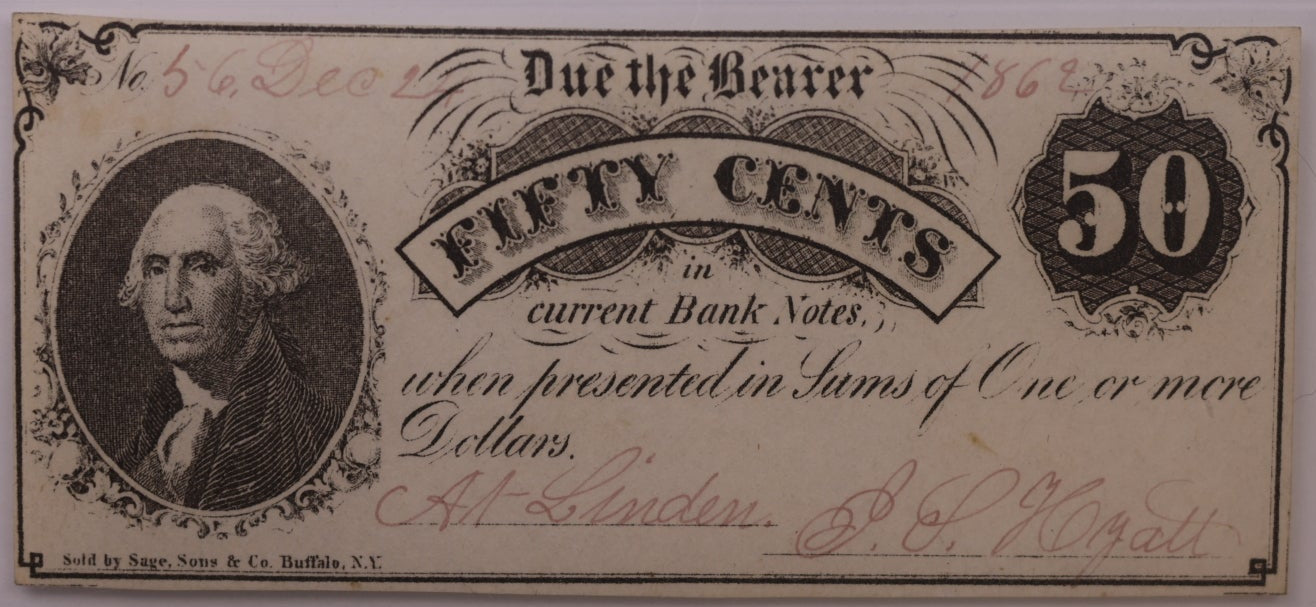 No. 56, Dec 24 1862
Due the Bearer
FIFTY CENTS
50
in
current Bank Notes,
when presented in Sums of One or more
Dollars.
At Linden.
J. S. Hyatt
Sold by Sage, Sons & Co. Buffalo, N.Y.